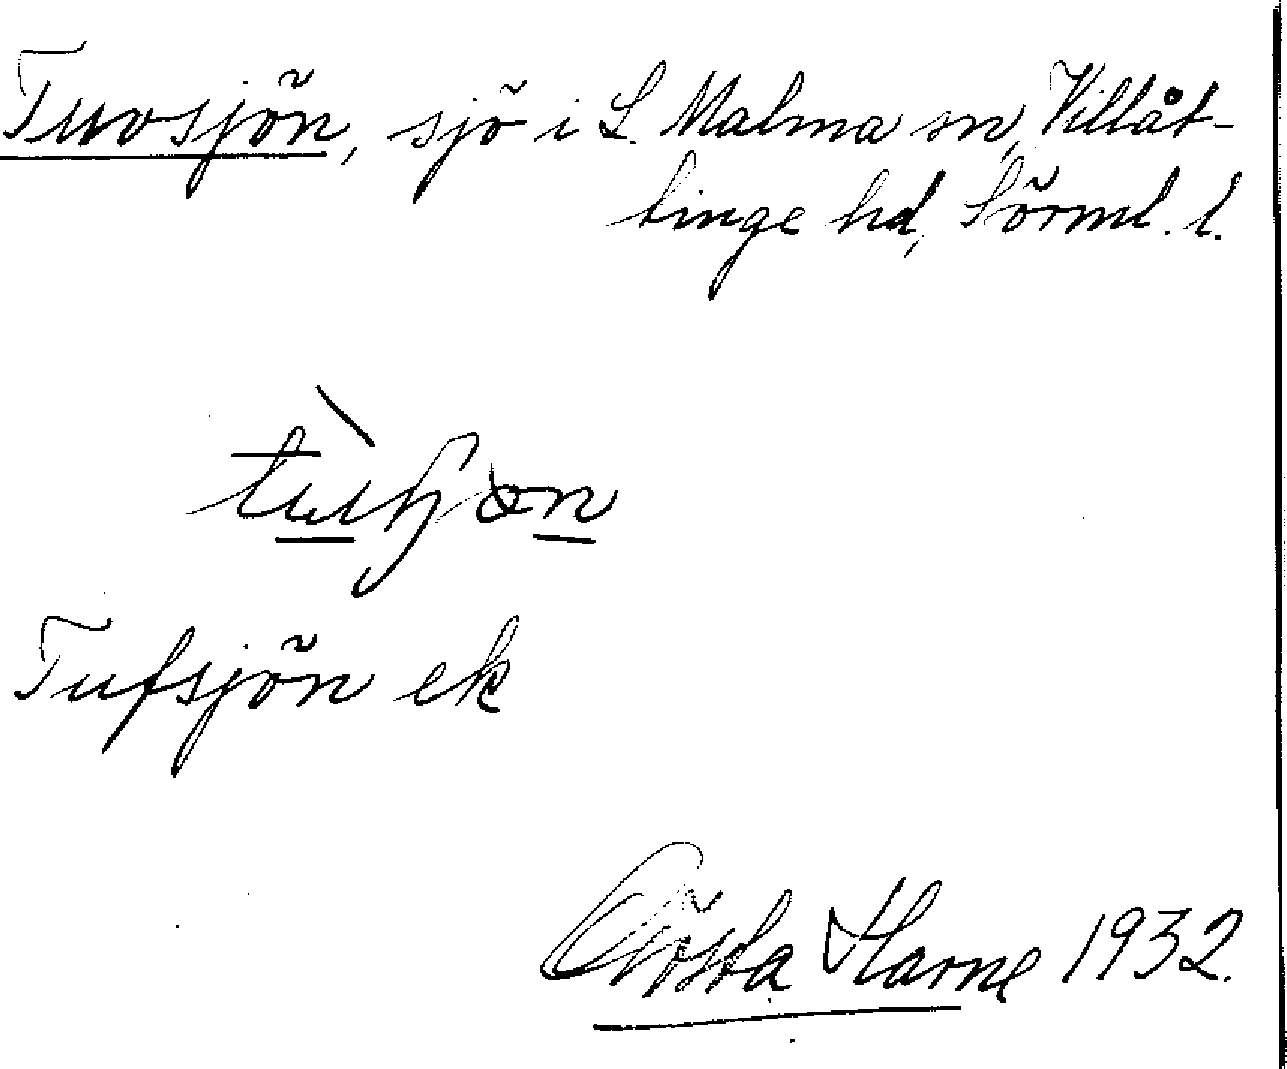 Tuvsjön, sjö i L. Malma sn, Villåt-
tinge hd, Sörml. l.
Tufsjön ek
Gösta Harne 1932.